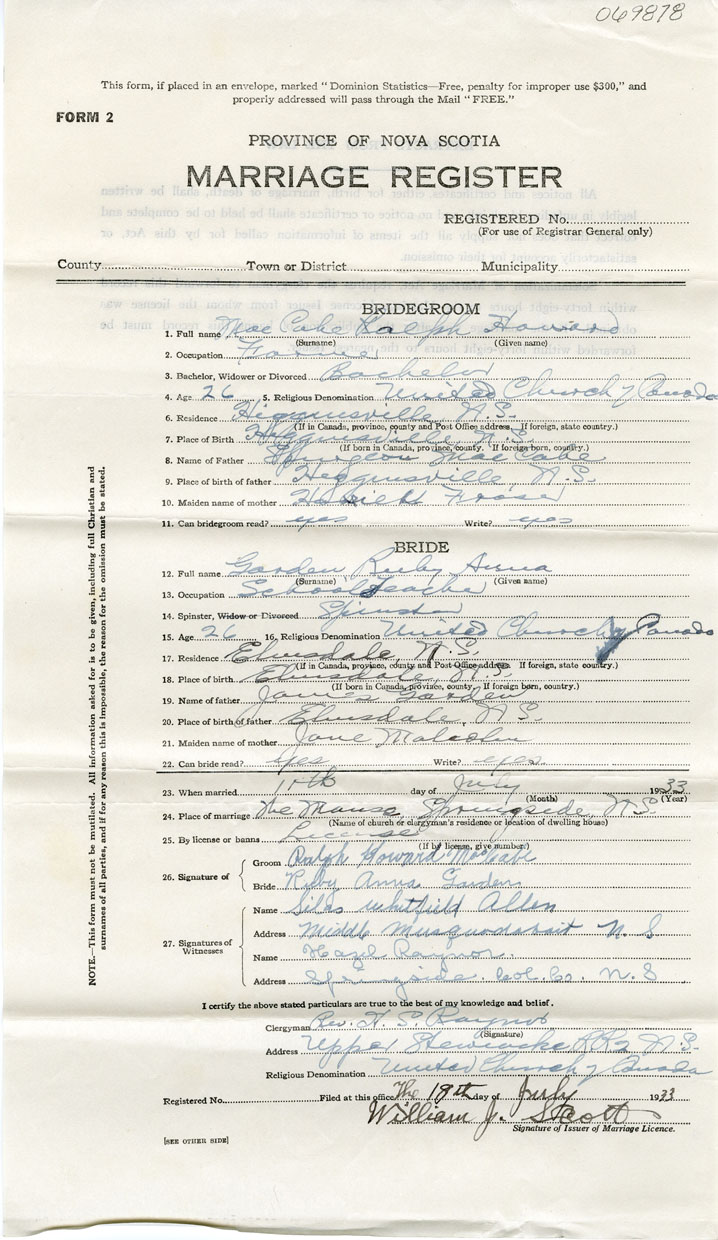 069878
This form, if placed in an envelope, marked "Dominion Statistics—Free, penalty for improper use $300," and
properly addressed will pass through the Mail "FREE."
FORM 2
PROVINCE OF NOVA SCOTIA
MARRIAGE REGISTER
REGISTERED No.
(For use of Registrar General only)
County Town or District Municipality
BRIDEGROOM
1. Full name MacCabe Ralph Howard
(Surname) (Given name)
2. Occupation Farmer
3. Bachelor, Widower or Divorced Bachelor
4. Age 26 5. Religious Denomination United Church of Canada
6. Residence Higginsville, N.S.
(If in Canada, province, county and Post Office address. If foreign, state country.)
7. Place of Birth Higginsville, N.S.
(If born in Canada, province, county. If foreign born, country.)
8. Name of Father Spurgeon MacCabe
9. Place of birth of father Higginsville, N.S.
10. Maiden name of mother Harriett Fraser
11. Can bridegroom read? yes Write? yes
BRIDE
12. Full name Garden Ruby Anna
(Surname) (Given name)
13. Occupation School Teacher
14. Spinster, Widow or Divorced Spinster
15. Age 26 16. Religious Denomination United Church of Canada
17. Residence Elmsdale, N.S.
(If in Canada, province, county and Post Office address. If foreign, state country.)
18. Place of birth Elmsdale, N.S.
(If born in Canada, province, county. If foreign born, country.)
19. Name of father James Garden
20. Place of birth of father Elmsdale, N.S.
21. Maiden name of mother Jane Malcolm
22. Can bride read? yes Write? yes
23. When married day of July 1933
(Month) (Year)
24. Place of marriage The Manse, Springside, N.S.
(Name of church or clergyman's residence or location of dwelling house)
25. By license or banns License
(If by license, give number)
26. Signature of
Groom Ralph Howard MacCabe
Bride Ruby Anna Garden
27. Signatures of Witnesses
Name Silas Whitfield Allen
Address Middle Musquodoboit N.S
Name Hazel Raynor
Address Springside. Col. Co. N.S
I certify the above stated particulars are true to the best of my knowledge and belief.
Clergyman Rev. H. S. Raynor
(Signature)
Address Upper Stewiacke RR2 N.S.
Religious Denomination United Church of Canada
Registered No. Filed at this office The 19th day of July 1933
William J. Scott
Signature of Issuer of Marriage Licence.
[SEE OTHER SIDE]
NOTE.—This form must not be mutilated. All information asked for is to be given, including full Christian and
surnames of all parties, and if for any reason this is impossible, the reason for the omission must be stated.